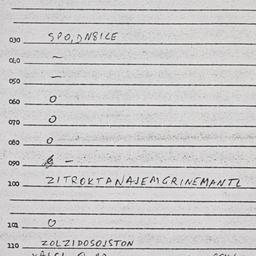 030 SPO,DN8ILE
040 –
050 –
060 O
070 O
080 O
090 –
100 ZITROKTANAJEMGRINEMANTL
101 O
110 ZOLZIDOSOJSTON